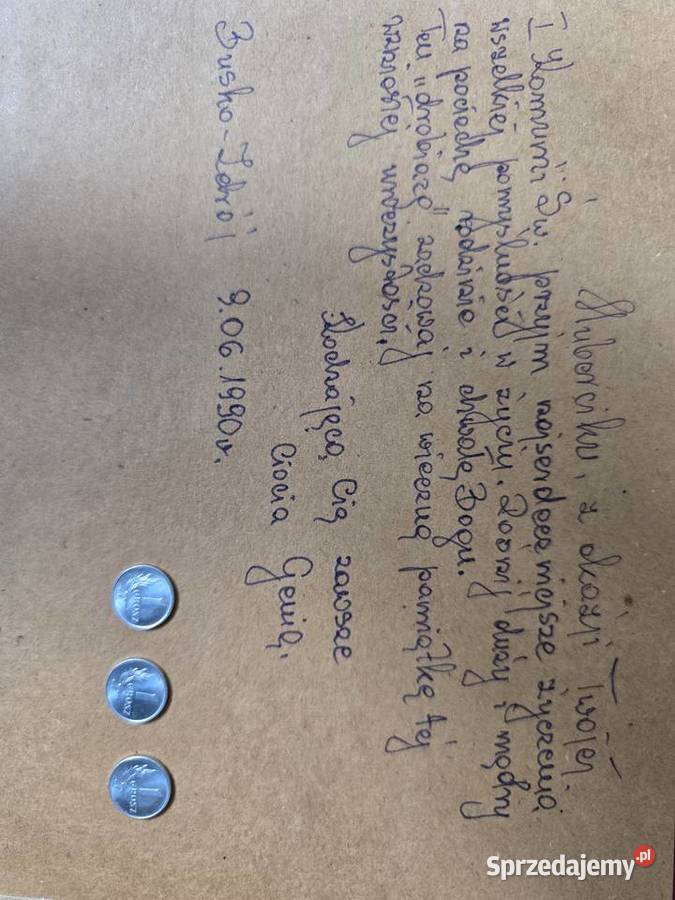 Huberciku, z okazji Twojej
I Komunii Św. przyjm najserdeczniejsze życzenia
wszelkiej pomyślności w życiu. Rośnij duży i mądry
na pociechę rodzinie i chwałę Bogu.
Ten "drobiazg" zachowaj na wieczną pamiątkę tej
wzniosłej uroczystości.
Kochająca Cię zawsze
Ciocia Genia
Busko-Zdrój 9.06.1990r.
1 GROSZ
1 GROSZ
1 GROSZ
Sprzedajemy.pl